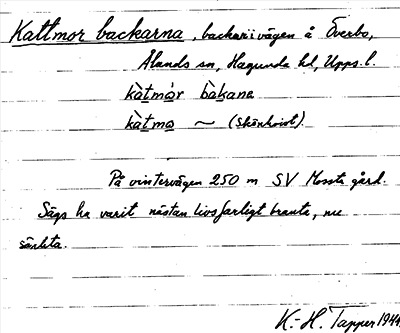 Kattmor backarna, backar i vägen å Överbo,
Ålands sn, Hagunda hd, Upps. l.
kàtmór bàkana
kàtmo ~ (skönhoist).
På vintervägen 250 m SV Mossta gård.
Sägs ha varit nästan livsfarligt branta, nu
sänkta.
K.-H. Tapper 1944